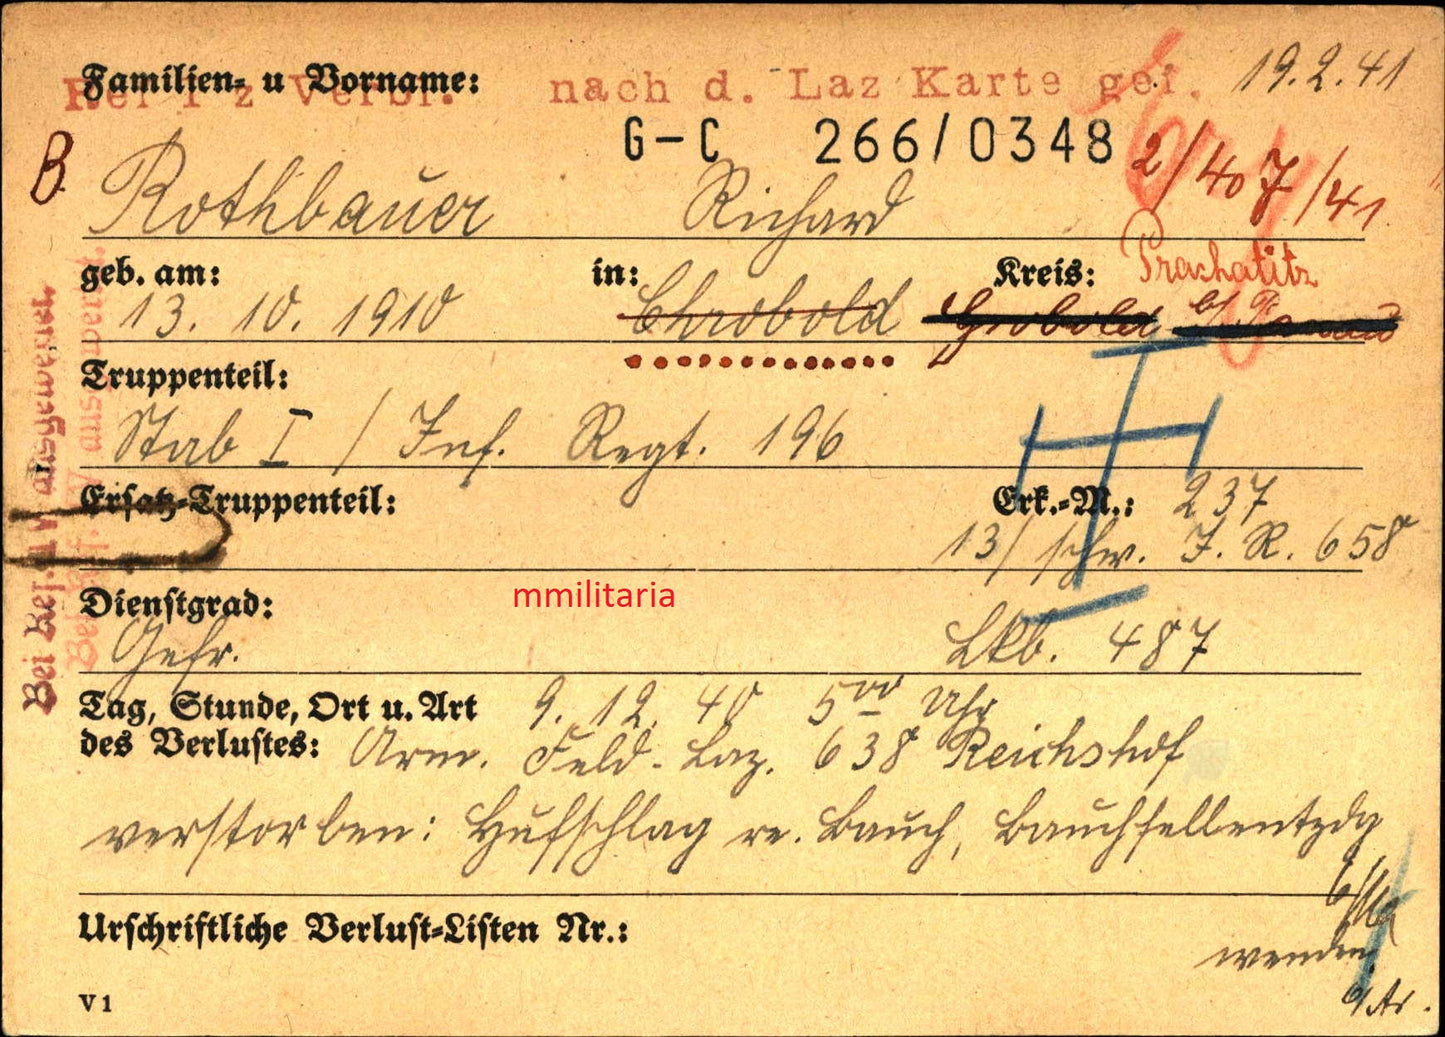 Familien- u Vorname: nach d. Laz Karte gef. 19.2.41
G-C 266/0348
B. Rothbauer Richard 2/407/41
geb. am: in: Kreis: Prachatitz
13. 10. 1910 Chrobold Grobold
Truppenteil:
Stab I / Inf. Regt. 196
Ersatz-Truppenteil: Erk.-M.: 237
13/ schw. I. R. 658
Dienstgrad: mmilitaria
Gefr. Lkb. 487
Tag, Stunde, Ort u. Art 9. 12. 40 5⁰⁰ Uhr
des Verlustes: Arm. Feld-Laz. 638 Reichshof
verstorben: Hufschlag re. Bauch, Bauchfellentzdg
Urschriftliche Verlust-Listen Nr.:
wenden
V1
Bei Ref. ausgewertet.